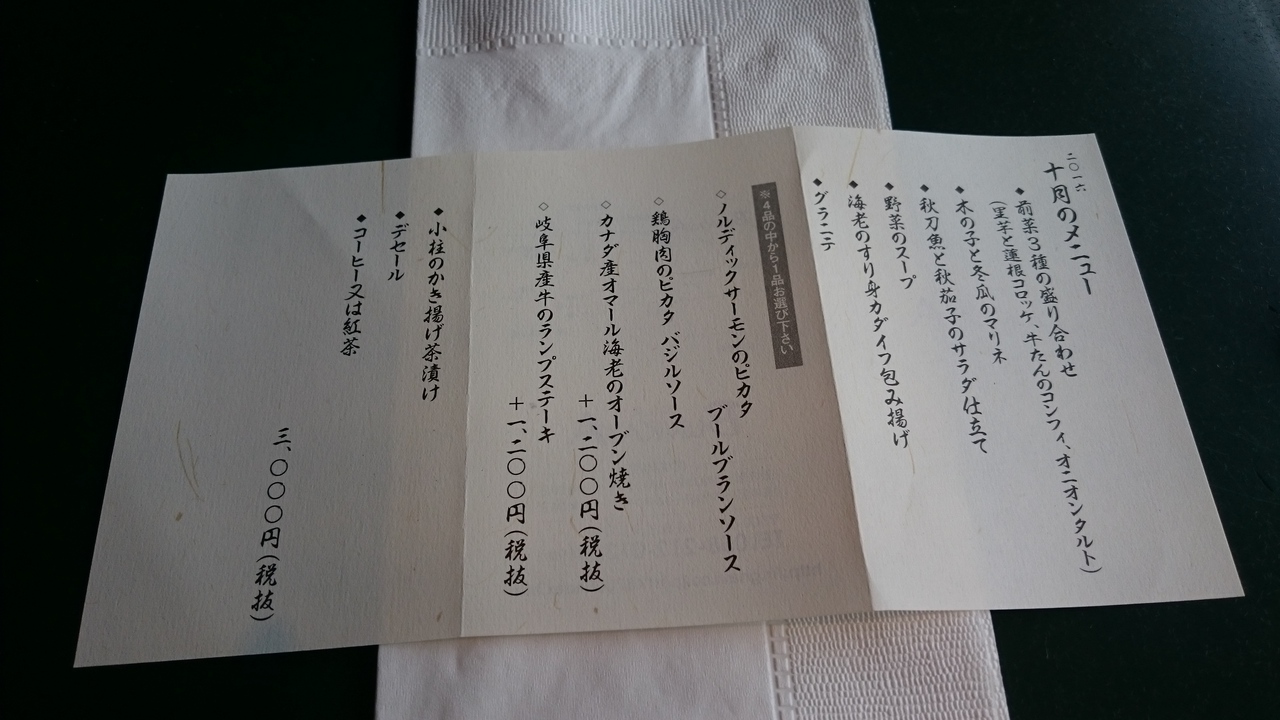 二〇一六
十月のメニュー
◆前菜3種の盛り合わせ
(里芋と蓮根コロッケ、牛たんのコンフィ、オニオンタルト)
◆木の子と冬瓜のマリネ
◆秋刀魚と秋茄子のサラダ仕立て
◆野菜のスープ
◆海老のすり身カダイフ包み揚げ
◆グラニテ
※4品の中から1品お選び下さい
◇ノルディックサーモンのピカタ
ブールブランソース
◇鶏胸肉のピカタ バジルソース
◇カナダ産オマール海老のオーブン焼き
+一、二〇〇円(税抜)
◇岐阜県産牛のランプステーキ
+一、二〇〇円(税抜)
◆小柱のかき揚げ茶漬け
◆デセール
◆コーヒー又は紅茶
三、〇〇〇円(税抜)